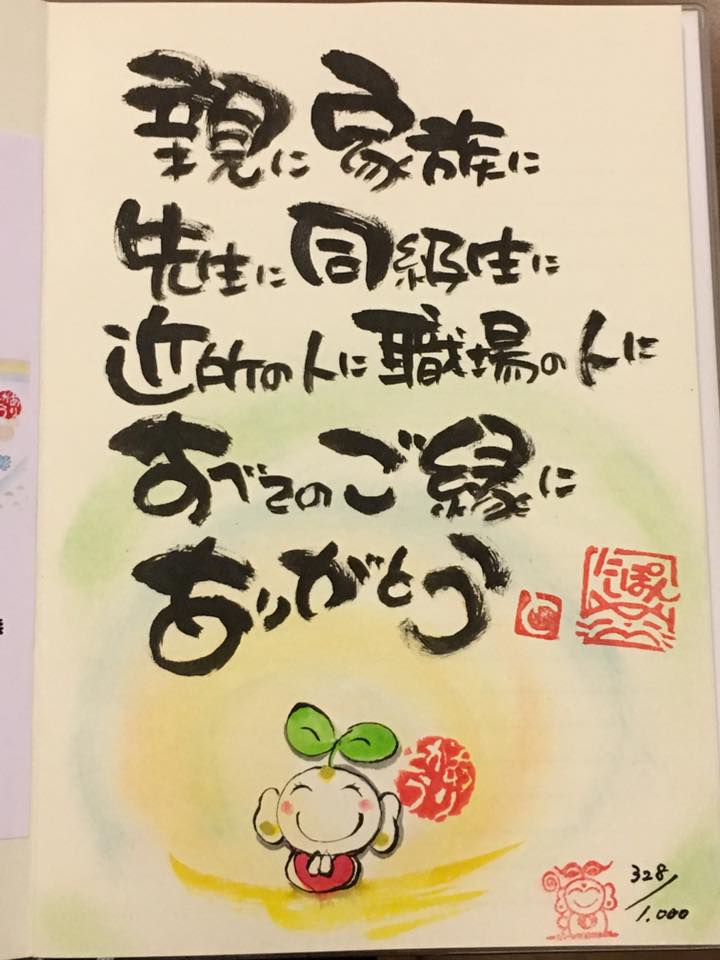 親に家族に
先生に同級生に
近所の人に職場の人に
すべてのご縁に
ありがとう
にしぽん
ありがとう
328/1,000